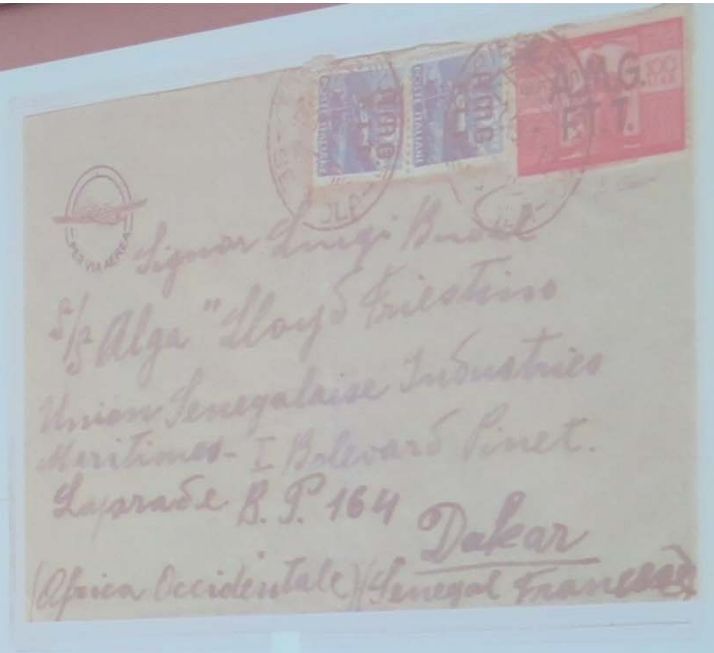 A.M.G.
F.T.T.
100
POSTE ITALIANE
POSTE ITALIANE
PER VIA AEREA
Signor Luigi
S/S Alga "Lloyd Triestino
Union Senegalaise Industries
Maritimes - I Bolevard Pinet.
Laprade B.P. 164
Dakar
(Africa Occidentale)(Senegal Francese)